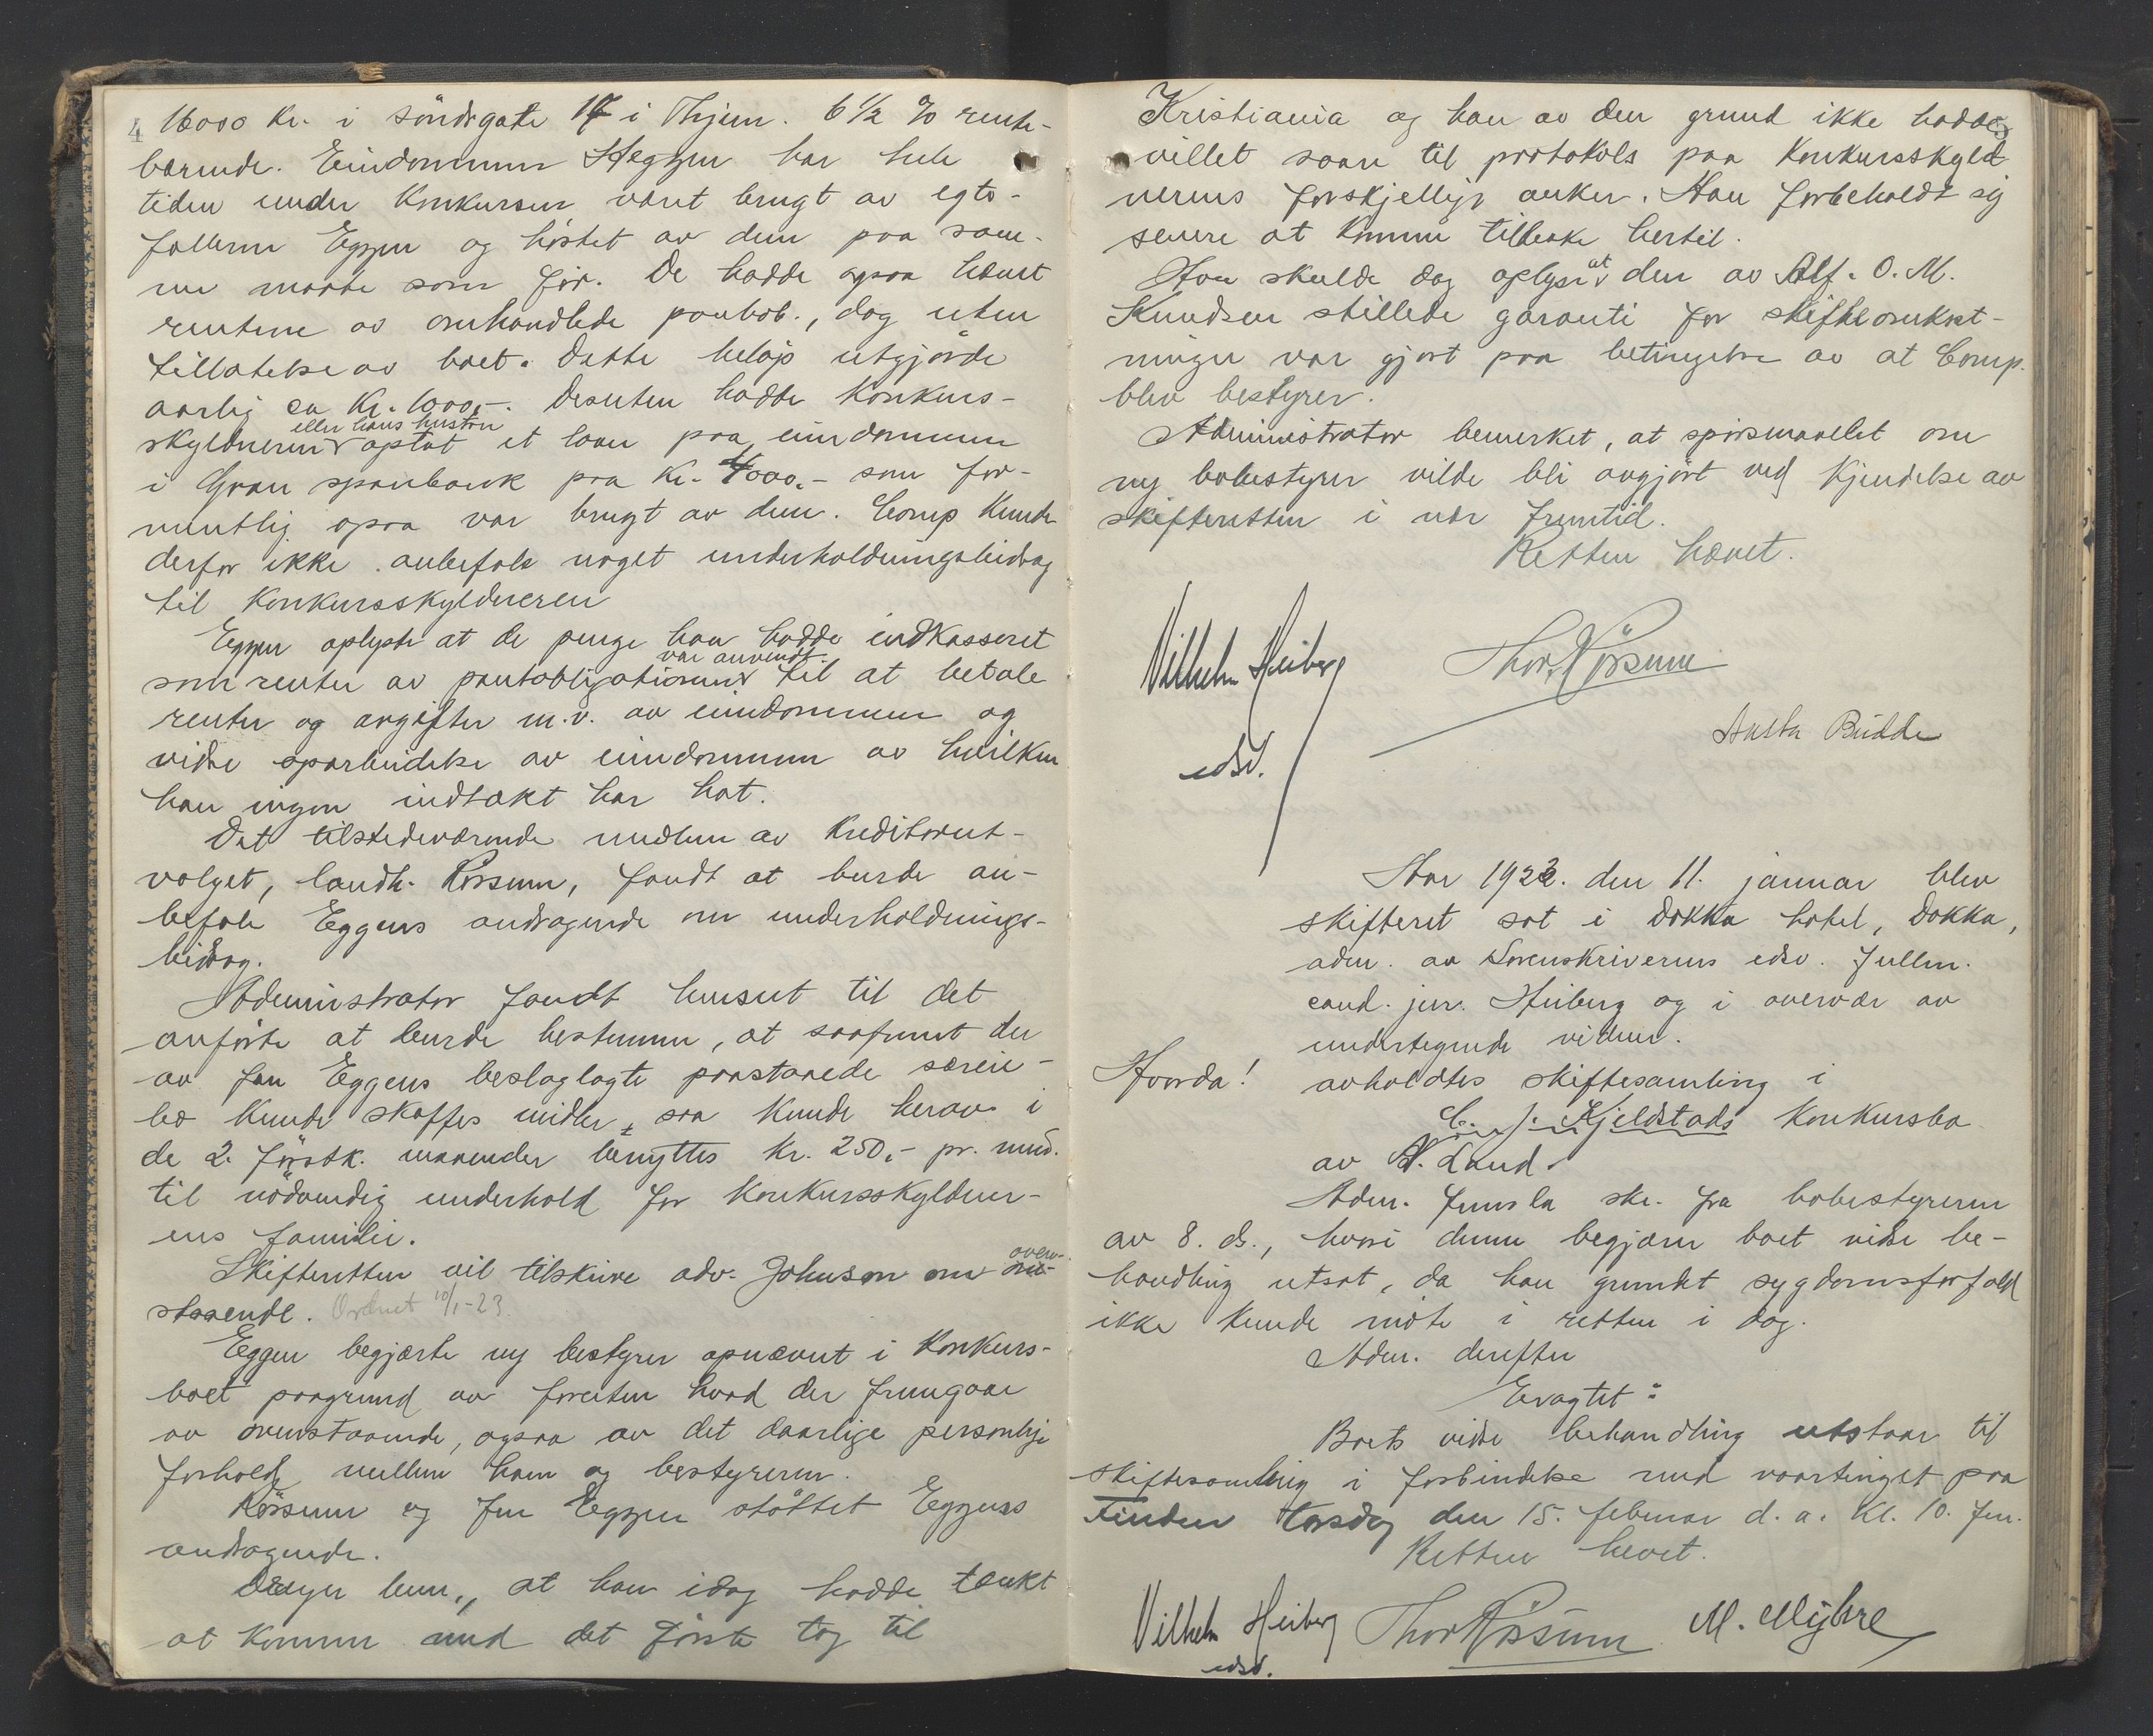 4 16000 kr. i söndregate 17 i Thjem. 6 1/2 % rente-
bærende. Eiendommen Heggen har hele
tiden under konkursen været brugt av egte-
fællerne Eggen og höstet av dem paa sam-
me maate som för. De hadde ogsaa hævet
rentene av omhandlede pantob., dog uten
tillatelse av boet. Dette belöp utgjorde
aarlig ca Kr. 1000,-. Desuten hadde konkurs-
eller hans hustru
skyldneren optat et laan paa eiendommen
i Gran sparebank paa kr. 4000.- som for-
mentlig ogsaa var brugt av dem. Comp. kunde
derfor ikke anbefale noget underholdningsbidrag
til konkursskyldneren
Eggen oplyste at de penge han hadde indkasseret
var anvendt
som renter av pantobligationen til at betale
renter og avgifter m.v. av eiendommen og
videre oparbeidelse av eiendommen av hvilken
han ingen indtækt har hat.
Det tilstedeværende medlem av kreditorut-
valget, landh. Rössum, fandt at burde an-
befale Eggens andragende om underholdnings-
bidrag.
Administrator fandt hensett til det
anförte at burde bestemme, at saafremt der
av fru Eggens beslaglagte paastaaede særeie-
bo kunde skaffes midler, saa kunde herav i
de 2 förstk. maaneder benyttes kr. 250,- pr. mnd.
til nödvendig underhold for konkursskyldner-
ens familie.
Skifteretten vil tilskrive adv. Johnson om oven-
staaende. Ordnet 10/1-23.
Eggen begjærte ny bestyrer opnævnt i konkurs-
boet paagrund av foruten hvad der fremgaar
av ovenstaaende, ogsaa av det daarlige personlige
forhold mellem ham og bestyreren.
Rössum og fru Eggen støttet Eggens
andragende.
at han idag hadde tænkt
at komme med det förste tog til
Kristiania og han av den grund ikke hadde
villet svare til protokols paa konkursskyld
nerens forskjellige anker. Han forbeholdt sig
senere at komme tilbake hertil.
Han skulde dog oplyse at den av Alf. O. M.
Knudsen stillede garanti for skifteomkost-
ninger var gjort paa betingelse av at Comp.
blev bestyrer.
Administrator bemerket, at spörsmaalet om
ny bobestyrer vilde bli avgjört ved kjendelse av
skifteretten i nær fremtid.
Retten hævet.
Vilhelm Heiberg
edsv.
Thor Rössum
Budde
Aar 1923. den 11. januar blev
skifteret sat i Dokka hotel, Dokka,
adm. av Sorenskriverens edsv. fullm.
cand. jur. Heiberg og i overvær av
undertegnede vidner.
Hvorda!
avholdtes skiftesamling i
Kjeldstads konkursbo
av N. Land.
Adm. fremla skr. fra bobestyreren
av 8. ds., hvori denne begjærer boet videre be-
handling utsat, da han grundet sygdomsforfald
ikke kunde møte i retten i dag.
Adm. derefter
Eragtet:
Boets videre behandling utstaar til
skiftesamling i forbindelse med vaartinget paa
Finden torsdag den 15. februar d. a. kl. 10. fm.
Retten hævet.
Vilhelm Heiberg
edsv.
Thor Rössum
M. Myhre